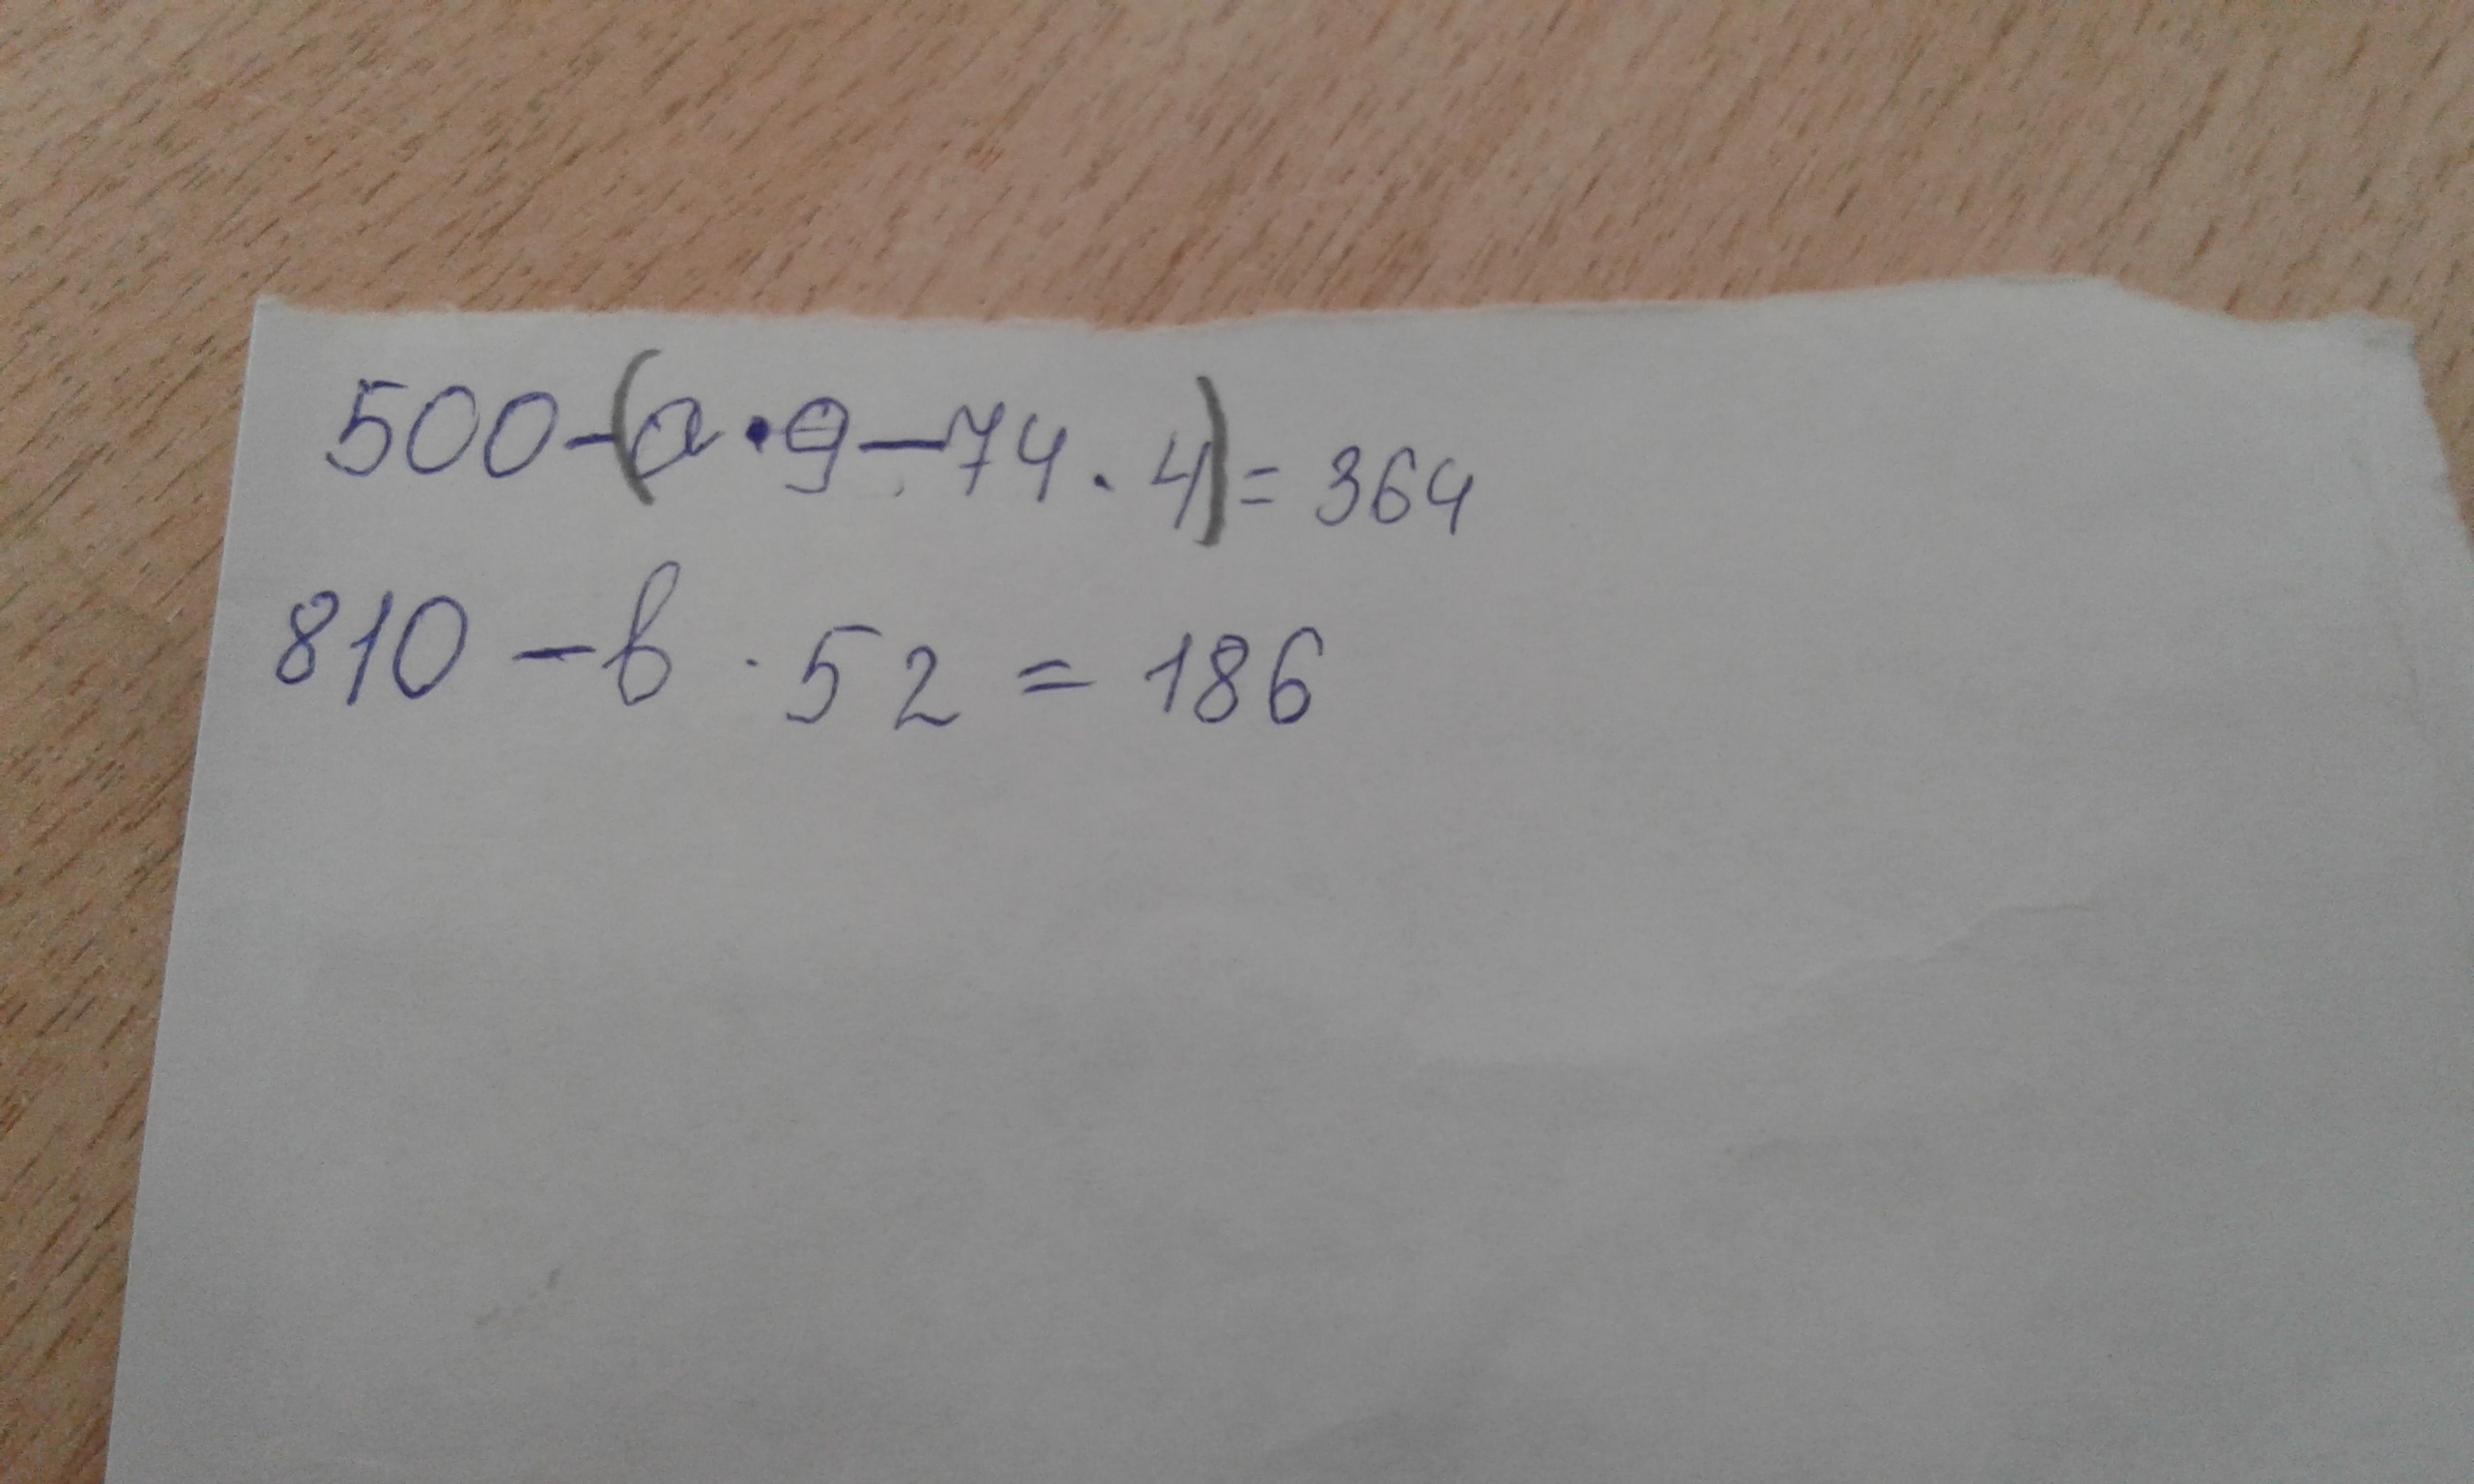 500-(a·9-74·4)=364
810-b·52=186